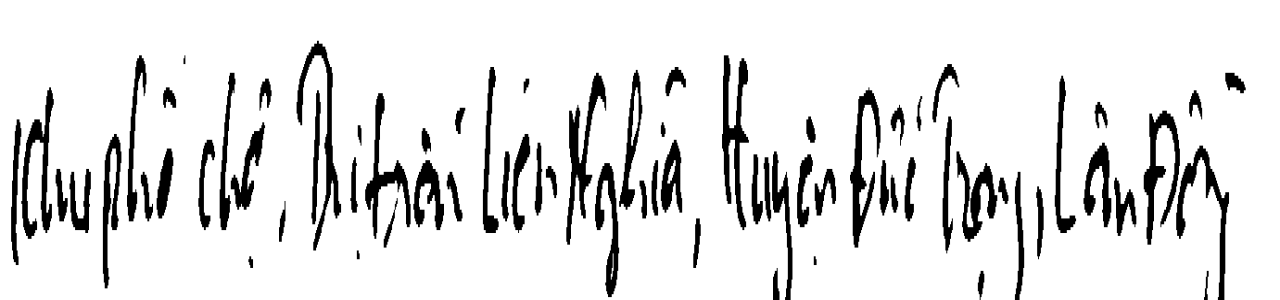 Khu phố chợ, Thị trấn Liên Nghĩa, Huyện Đức Trọng, Lâm Đồng